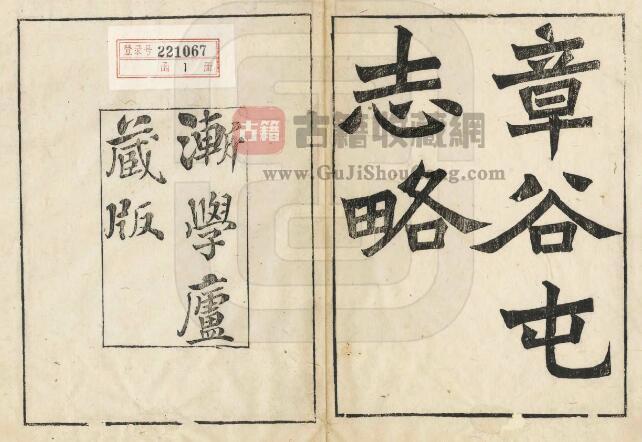 章谷屯
志略
漸學廬
藏版
登录号 221067
函 1 册
古籍 古籍收藏網
www.GuJiShouCang.com